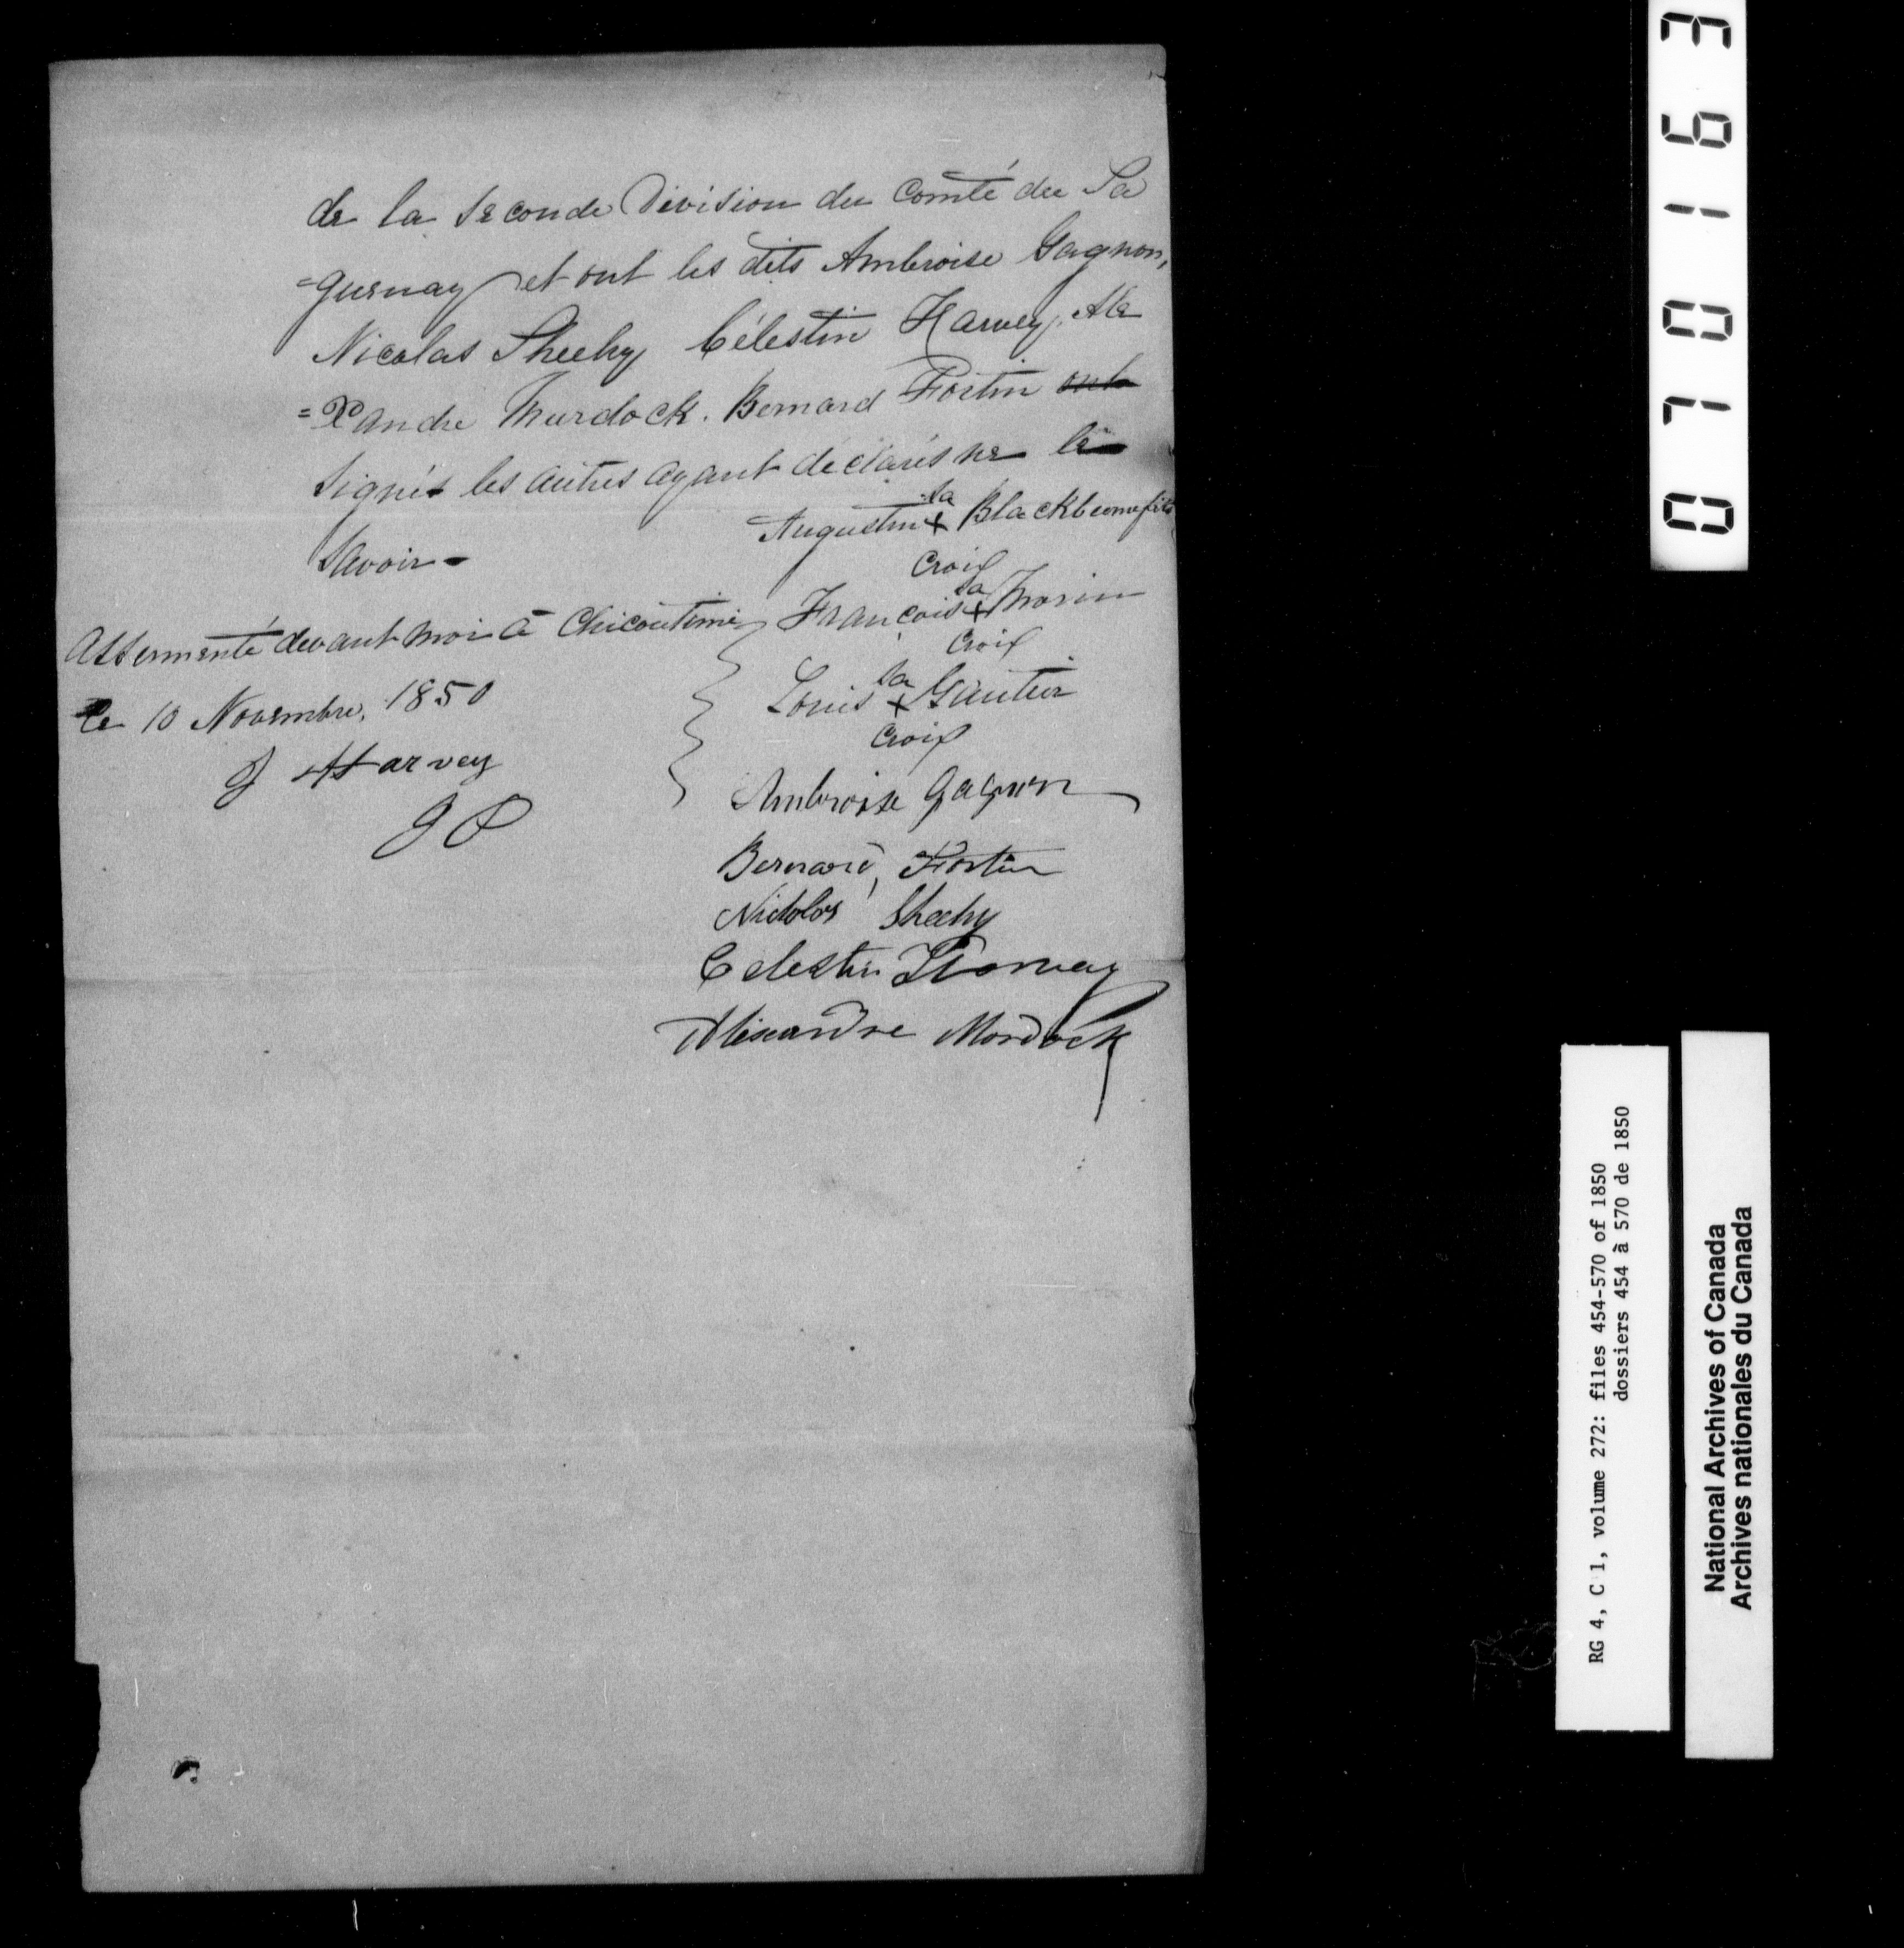 de la seconde Division du Comté du Sa
=guenay et ont les dits Ambroise Gagnon,
Nicolas Sheehy Célestin Harvey, Ale
=Xandre Murdock. Bernard Fortin ont
signés les autres ayant déclarés ne le
savoir -
Augustin sa + croix Blackburn fils
François sa + croix Morin
Louis sa + croix Gautier
Assermenté devant moi à Chicoutimi
le 10 Novembre, 1850
J Harvey
JP
Ambroise Gagnon
Bernard, Fortin
Nicholas Sheehy
Celestin Harvay
Alexandre Mordock
070163
RG 4, C 1, volume 272: files 454-570 of 1850
dossiers 454 à 570 de 1850
National Archives of Canada
Archives nationales du Canada